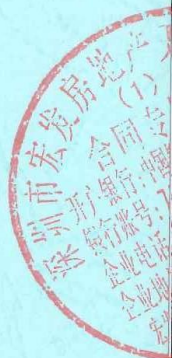 深圳市宏发房地产
(1)
合同
开户银行:中国
银行账号:7
企业电话
企业地
宏